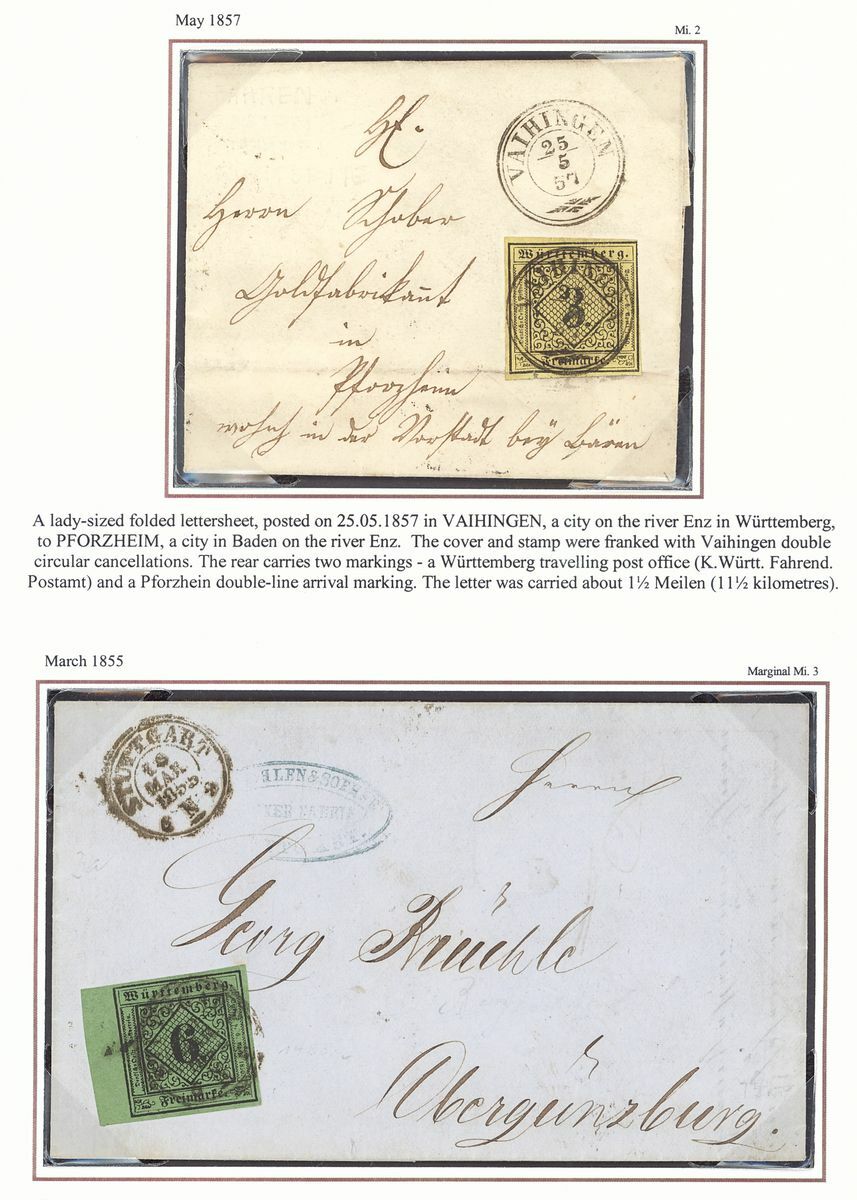 May 1857
Mi. 2
VAIHINGEN
25
5
57
Herrn Schober
Goldfabrikant
in
Pforzheim
wohnh in der Vorstadt bey Bären
Württemberg.
3
Freimarke
A lady-sized folded lettersheet, posted on 25.05.1857 in VAIHINGEN, a city on the river Enz in Württemberg,
to PFORZHEIM, a city in Baden on the river Enz. The cover and stamp were franked with Vaihingen double
circular cancellations. The rear carries two markings - a Württemberg travelling post office (K.Württ. Fahrend.
Postamt) and a Pforzhein double-line arrival marking. The letter was carried about 1½ Meilen (11½ kilometres).
March 1855
Marginal Mi. 3
STUTTGART
MAR
1855
N
Herrn
Georg
Obergünzburg.
Württemberg.
6
Freimarke